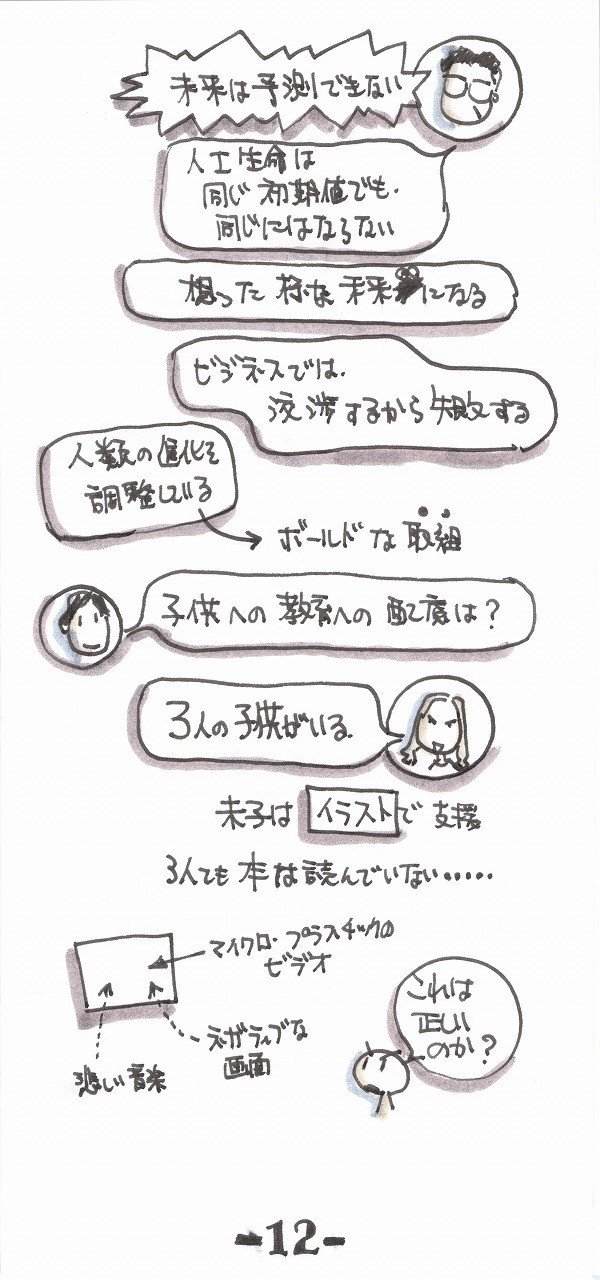 未来は予測できない
人工生命は
同じ初期値でも、
同じにはならない
想った様な未来になる
ビジネスでは、
交渉するから失敗する
人数の進化を
調整している
ボールドな取組
子供への教育への配慮は?
3人の子供がいる。
末子はイラストで支援
3人ても本は読んでいない.....
マイクロ・プラスチックの
ビデオ
ネガティブな
画面
悲しい音楽
これは
正しい
のか?
-12-